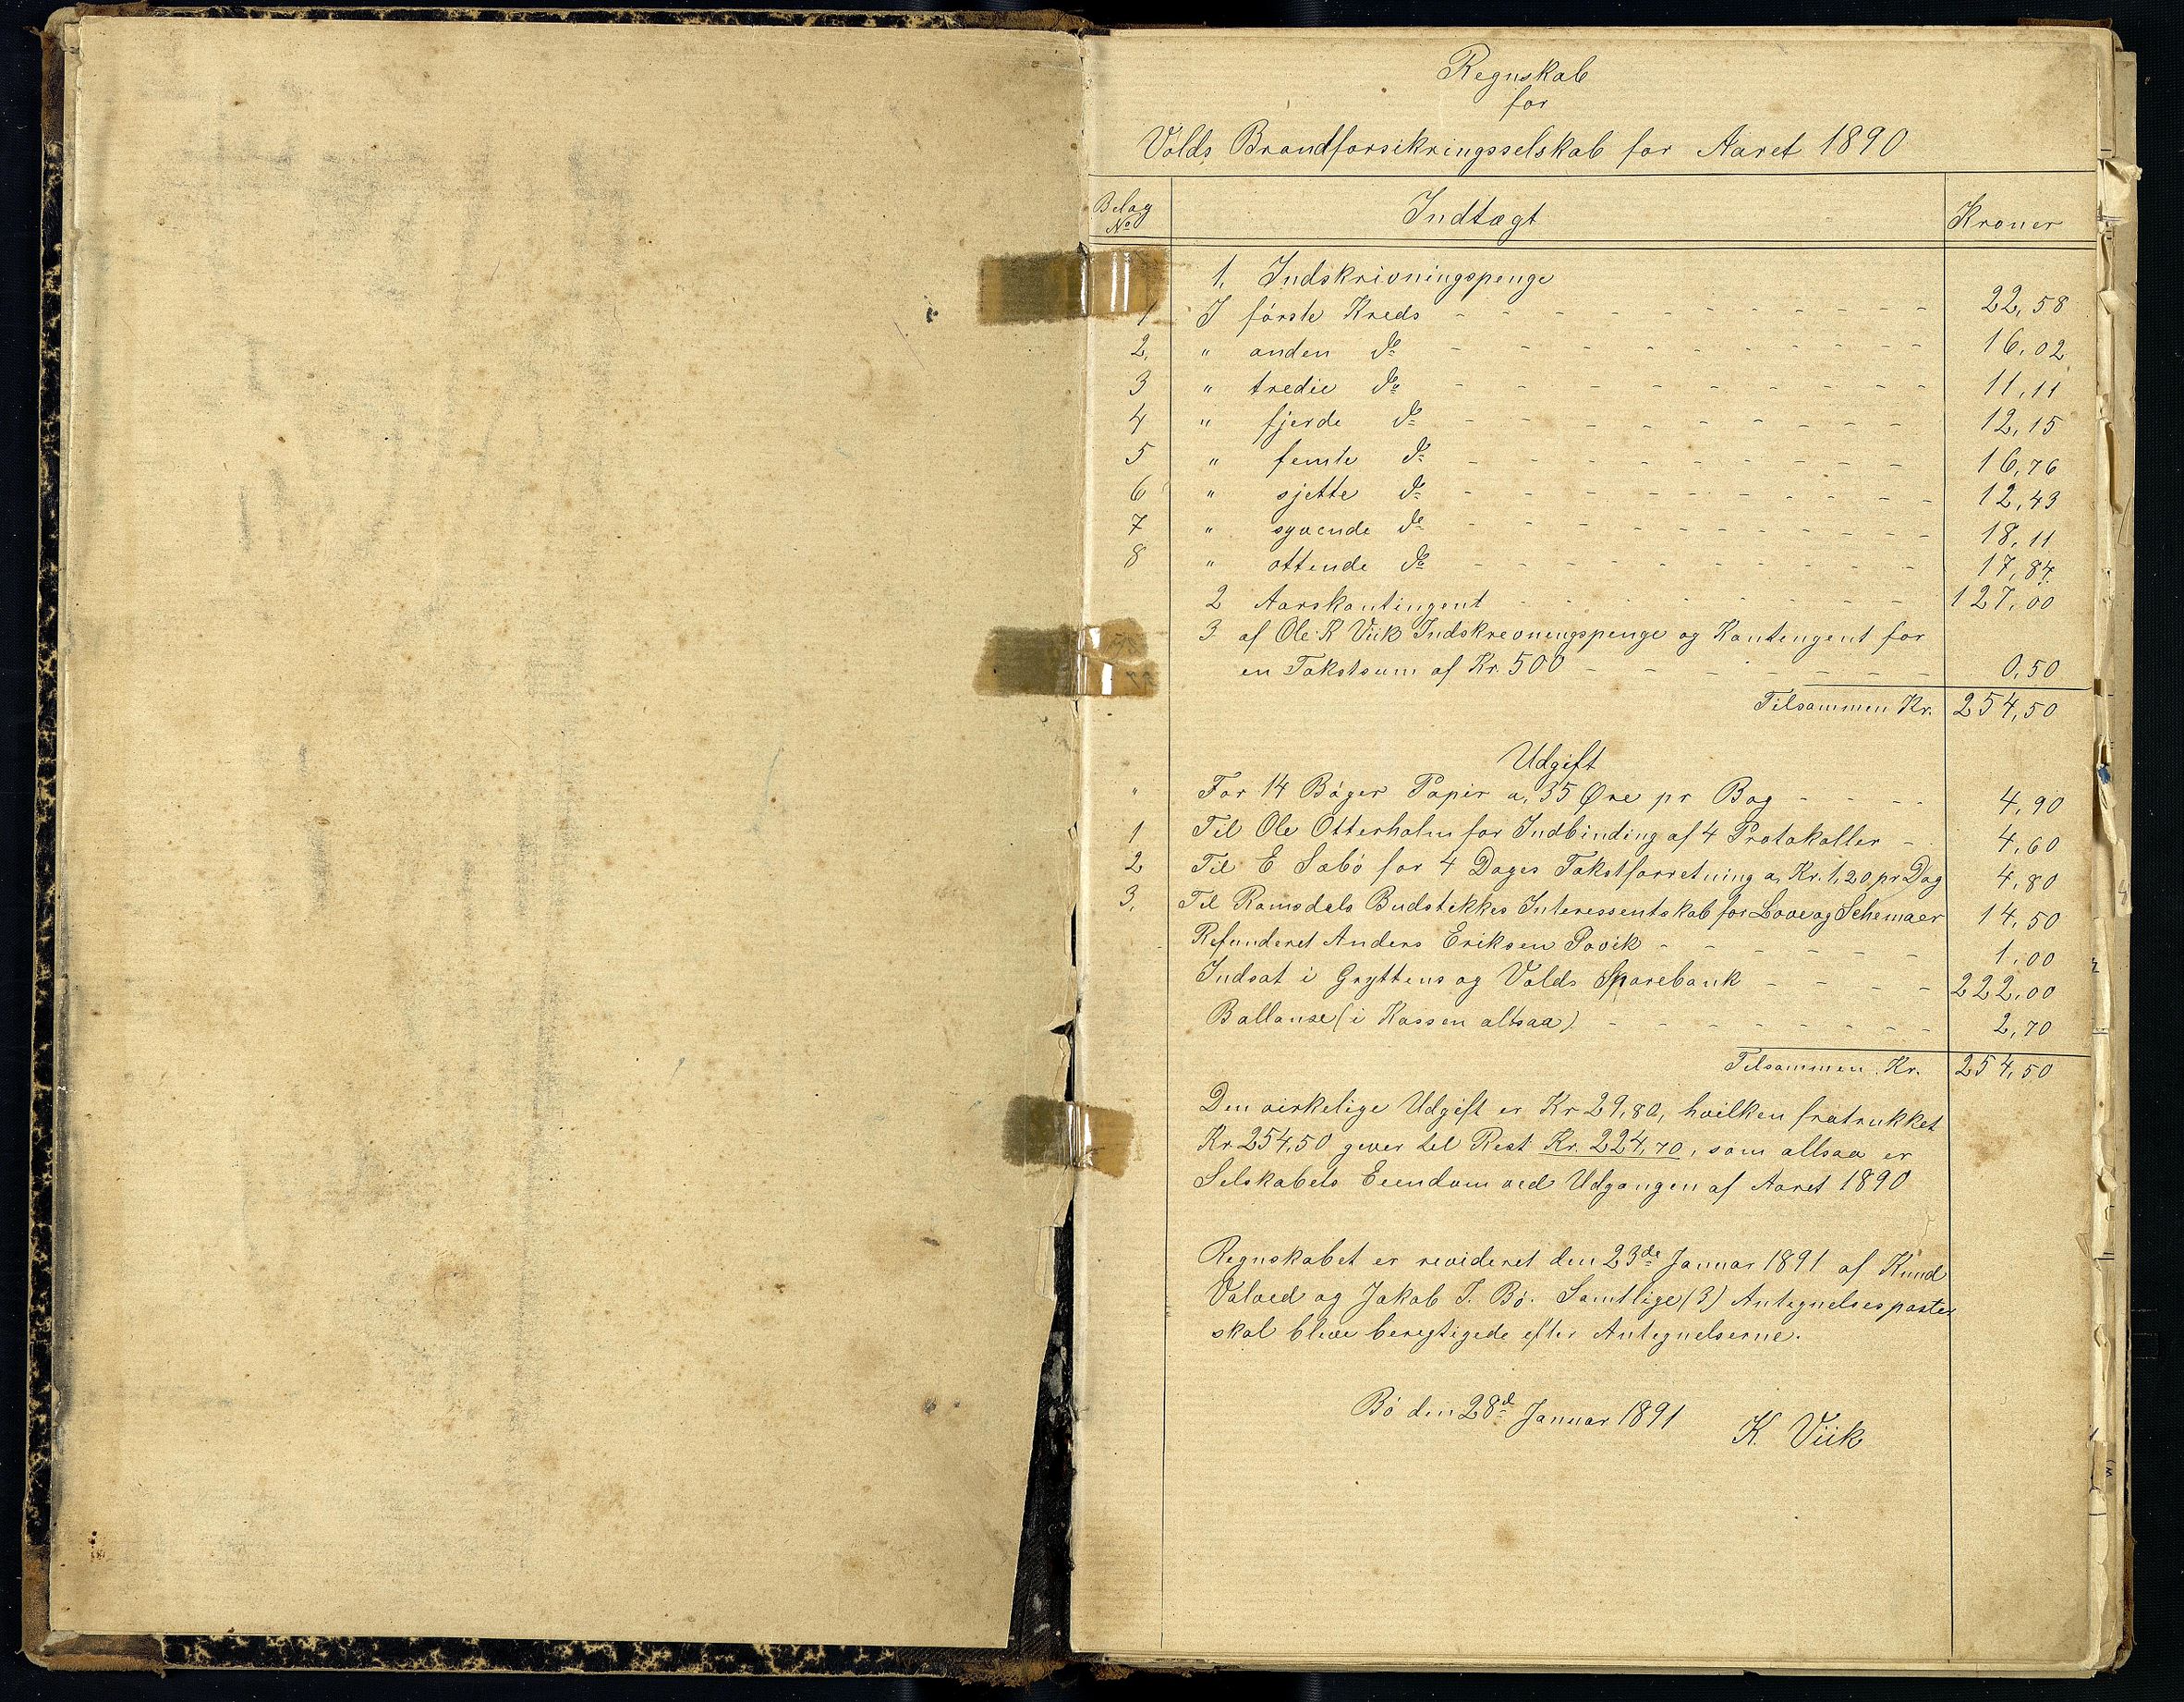 Regnskab
for
Volds Brandforsikringsselskab for Aaret 1890
Belag No Indtægt Kroner
1, Indskrivningspenge
1 I förste Kreds - - - - - - - - - - 22,58
2, " anden do - - - - - - - - - - 16,02
3 " tredie do - - - - - - - - - - 11,11
4 " fjerde do - - - - - - - - - - 12,15
5 " femte do - - - - - - - - - - 16,76
6 " sjette do - - - - - - - - - - 12,43
7 " syvende do - - - - - - - - - - 18,11
8 " ottende do - - - - - - - - - - 17,84
2 Aarskontingent - - - - - - - - 127,00
3 af Ole K Viik Indskrevningspenge og Kontengent for
en Takstsum af Kr. 500 - - - - - - - 0,50
Tilsammen Kr. 254,50
Udgift
" For 14 Böger Papir a, 35 Øre pr Bog - - - - 4,90
1 Til Ole Otterholm for Indbinding af 4 Protokoller - 4,60
2 Til E Sæbö for 4 Dages Takstforretning a, Kr. 1,20 pr Dag 4,80
3, Til Romsdals Budstikkes Interessentskab for Love og Schemaer 14,50
Refunderet Anders Eriksen Sovik - - - - - - 1,00
Indsat i Gryttens og Volds Sparebank - - - - 222,00
Ballanse (i Kassen altsaa) - - - - - - - - 2,70
Tilsammen Kr. 254,50
Den virkelige Udgift er Kr 29,80, hvilken fratrukket
Kr 254,50 gever til Rest Kr. 224,70, som altsaa er
Selskabets Eiendom ved Udgangen af Aaret 1890
Regnskabet er revideret den 23de Januar 1891 af Knud
Valved og Jakob J. Bö. Samtlige (3) Antegnelsesposter
skal bleve beregtigede efter Antegnelserne.
Bö den 28d Januar 1891
K. Viik